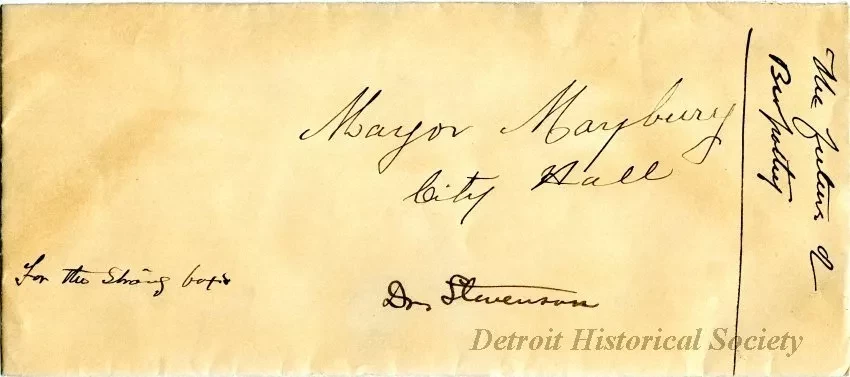 Mayor Maybury
City Hall
For the Strong box
Dr. Stevenson
The future of
Detroit Historical Society